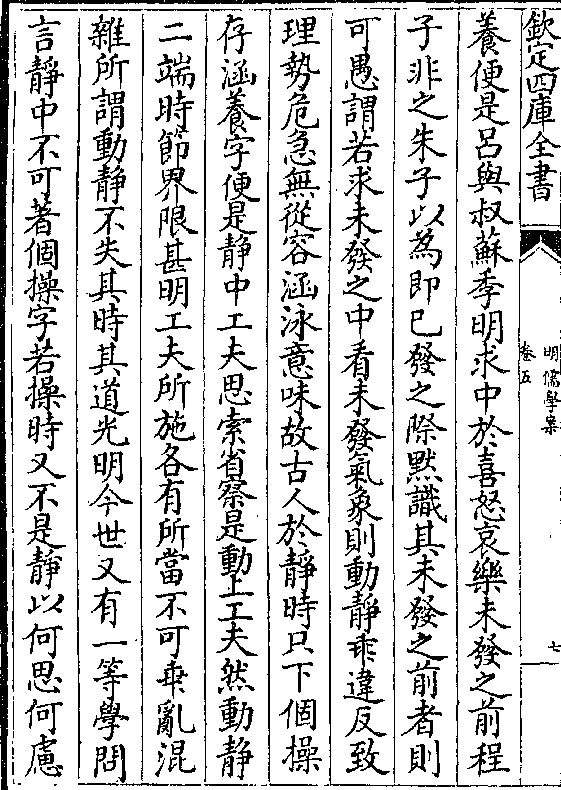 欽定四庫全書
明儒學案
卷五
七
養便是呂與叔蘇季明求中於喜怒哀樂未發之前程
子非之朱子以為即已發之際黙識其未發之前者則
可愚謂若求未發之中看未發氣象則動靜乖違反致
理勢危急無從容涵泳意味故古人於靜時只下個操
存涵養字便是靜中工夫思索省察是動上工夫然動靜
二端時節界限甚明工夫所施各有所當不可乖亂混
雜所謂動靜不失其時其道光明今世又有一等學問
言靜中不可著個操字若操時又不是靜以何思何慮